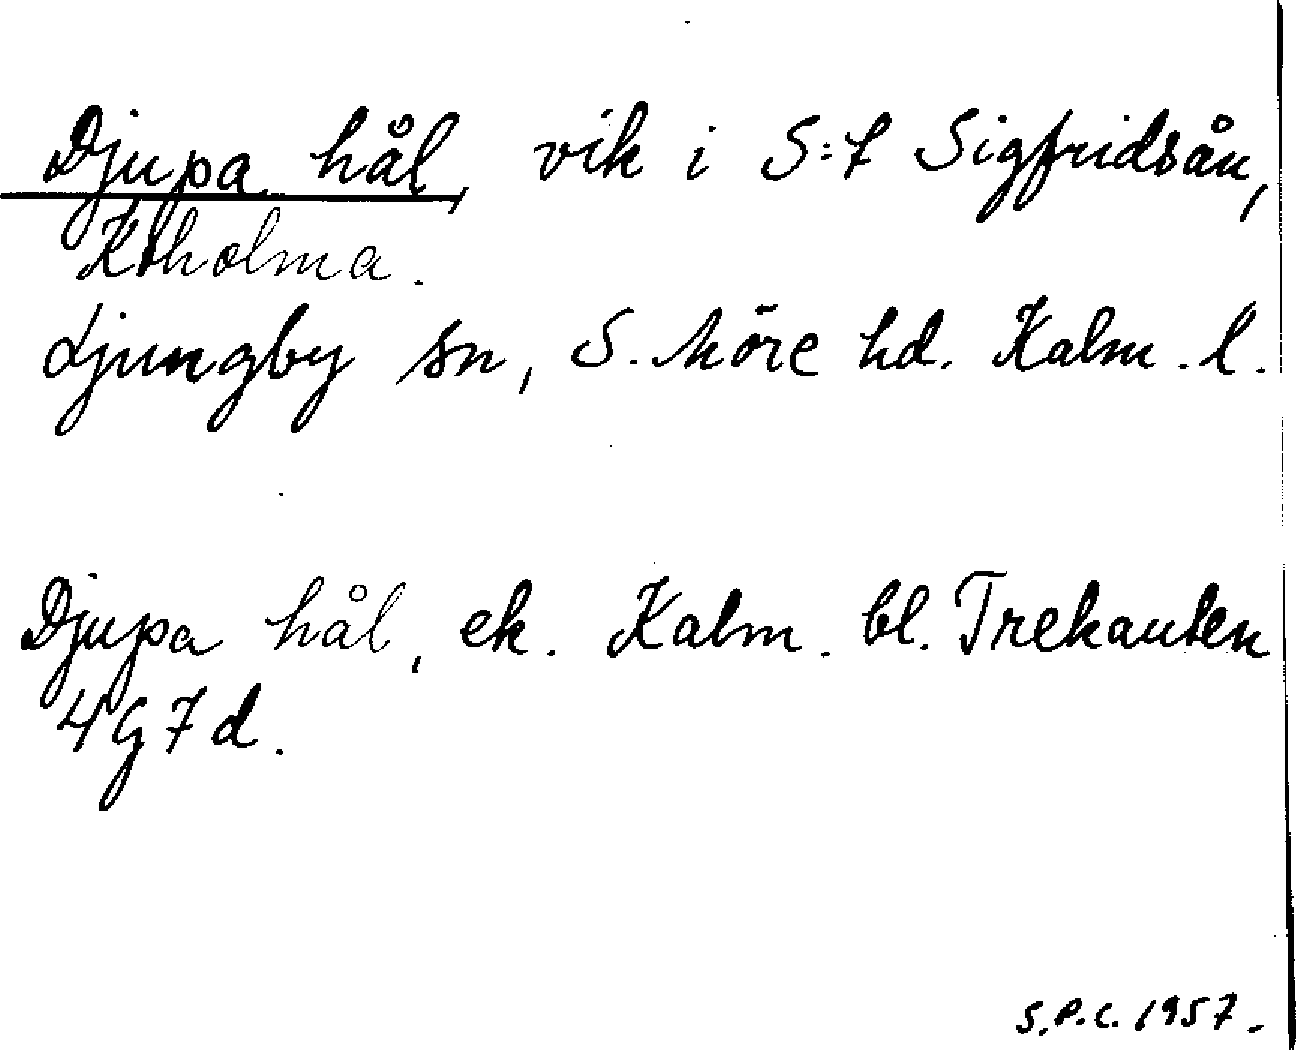 Djupa hål, vik i S:t Sigfridsån,
Koholma.
Ljungby sn, S. Möre hd. Kalm. l.
Djupa hål, ek. Kalm. bl. Trekanten
4G7d.
S.P.C. 1957.